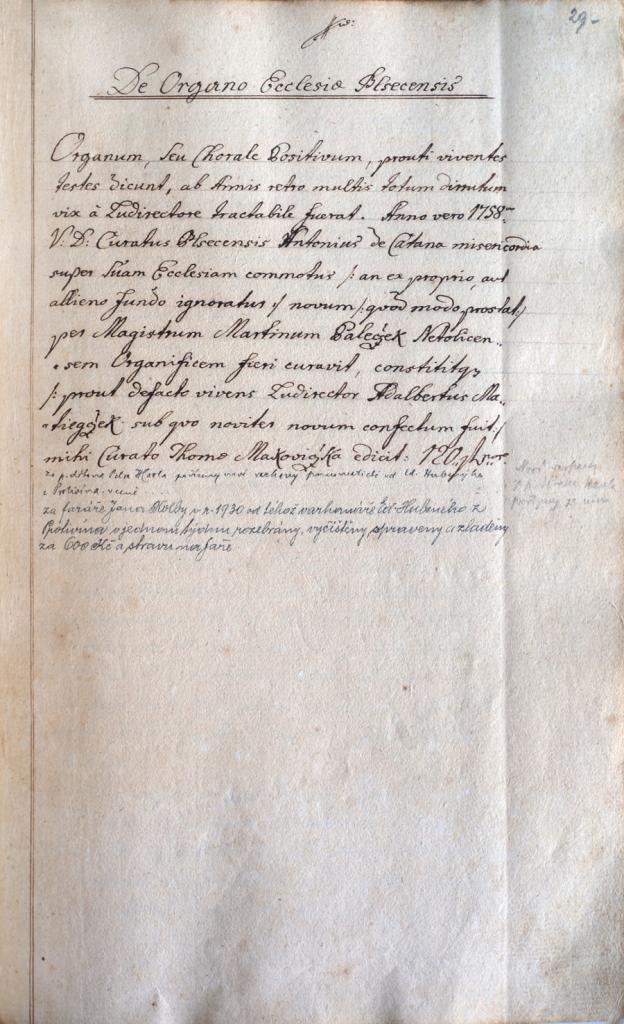 29.
De Organo Ecclesiæ Blsecensis
Organum, seu Chorale Positivum, prouti viventes
testes dicunt, ab Annis retro multis totum dirrutum
vix à Ludirectore tractabile fuerat. Anno vero 1758
V: D: Curatus Blsecensis Antonius de Catana misericordia
super suam Ecclesiam commotus /: an ex proprio, aut
allieno fundo ignoratus :/ novum /: qvod modo prostat :/
per Magistrum Martinum Paleczek Netolicen-
sem Organificem fieri curavit, constititq3
/: prout defacto vivens Ludirector Adalbertus Ma-
tiegczek sub qvo noviter novum confectum fuit :/
mihi Curato Thomæ Makoviczka edicit: 120
za Karla pořízeny nové varhany pneumatické od Ed. Hubeného
z Protivína
za faráře Jana Kolby v r. 1930 od téhož varhonáře Ed. Hubeného z
Protivína v jednom týdnu rozebrány, vyčištěny, spraveny a zladěny
za 600 Kč a stravu na faře.
Nové varhany